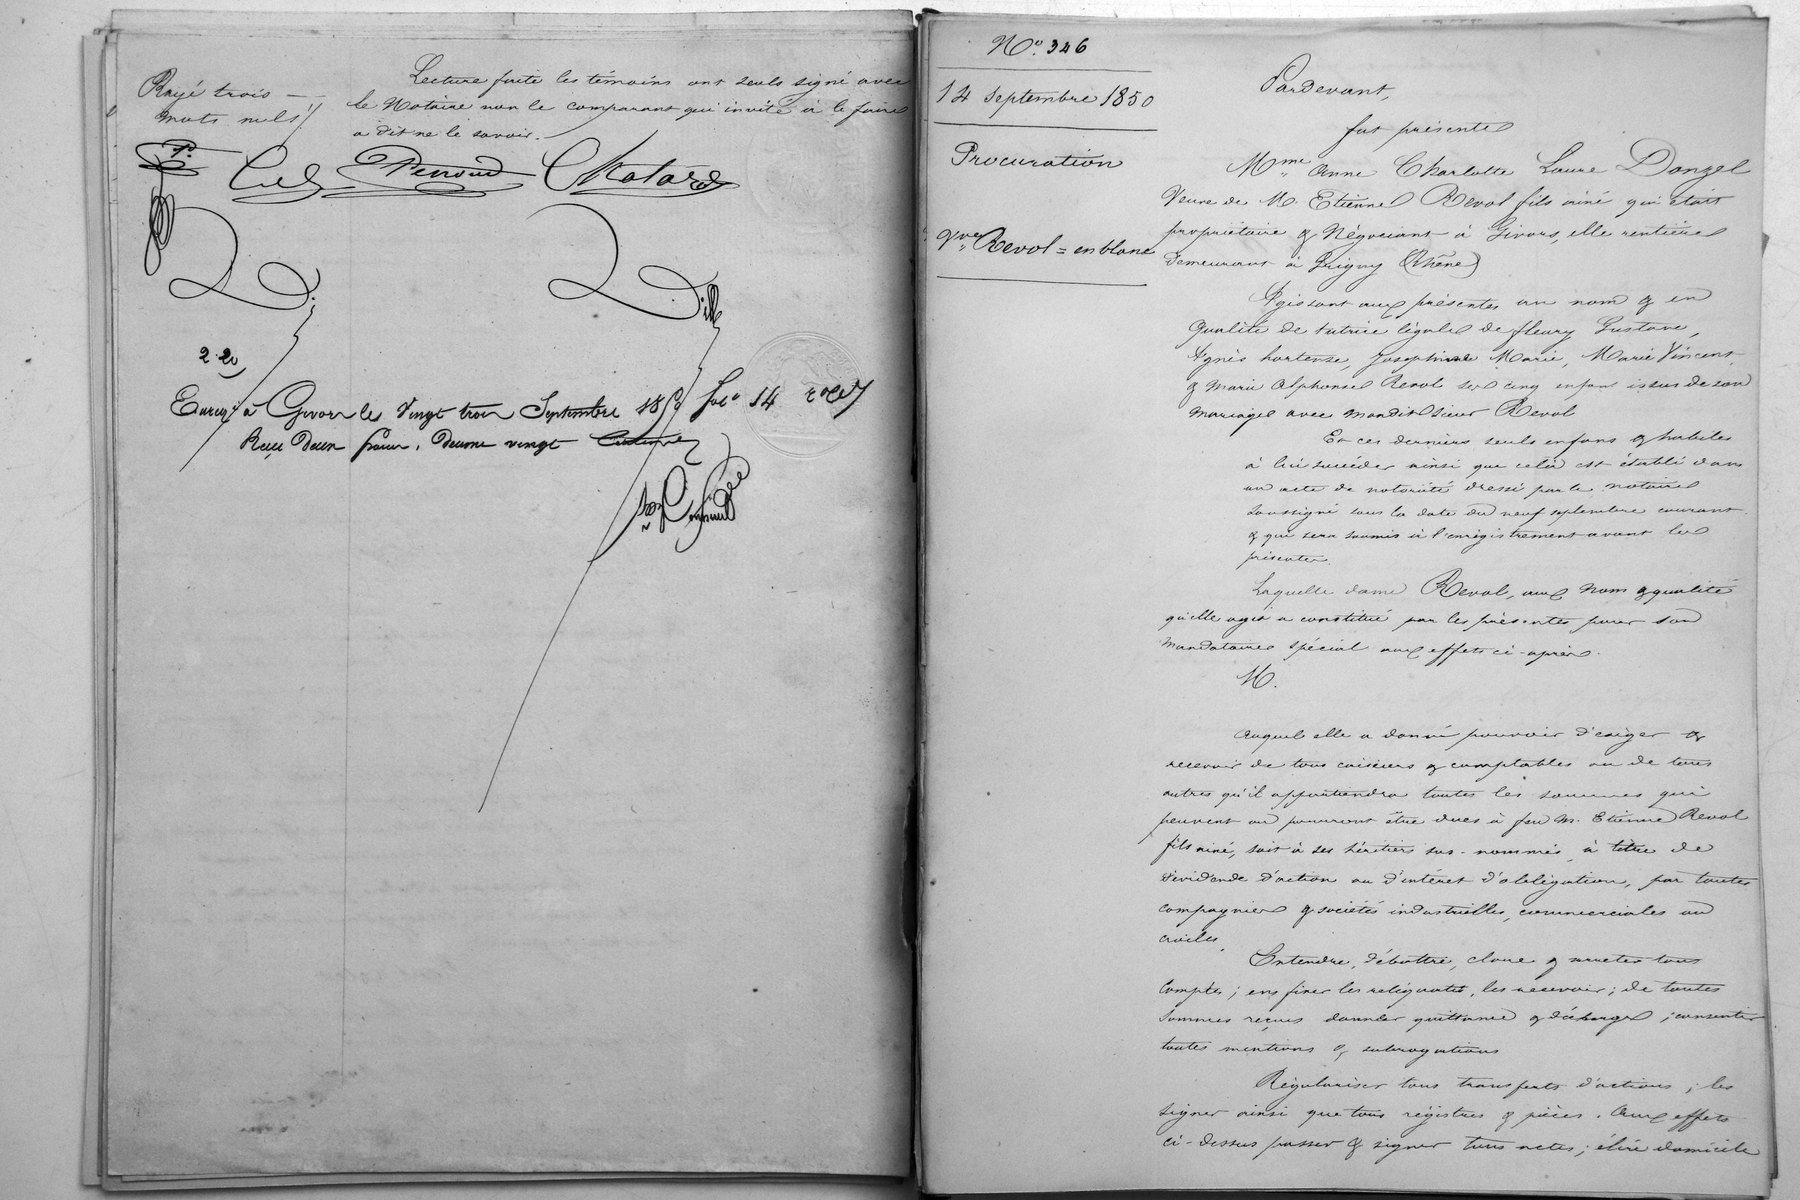 Rayé trois
mots nuls
Lecture faite les témoins ont seuls signé avec
le Notaire non le comparant qui invité à le faire
a dit ne le savoir.
2.20
Enreg. à Givors le Vingt trois Septembre 18 fol. 14
Reçu Deux francs, Decime vingt Centimes
N.º 346
14 Septembre 1850
Procuration
Vve. Revol = en blanc
Pardevant,
fut présente
Mme. Anne Charlotte Laure Donzel
Veuve de M. Etienne Revol fils ainé qui était
propriétaire & Négociant à Givors, elle rentière
demeurant à Grigny (Rhône)
Agissant aux présentes au nom & en
qualité de tutrice légale de fleury Gustave,
Agnès hortense, Joséphine Marie, Marie Vincent
& Marie Alphonse Revol ses cinq enfans issus de son
mariage avec mondit Sieur Revol
Et ces derniers seuls enfans & habiles
à lui succéder ainsi que cela est établi dans
un acte de notoriété dressé par le notaire
soussigné sous la date du neuf septembre courant
& qui sera soumis à l'enrégistrement avant les
présentes.
Laquelle dame Revol, aux noms & qualité
qu'elle agit a constitué par les présentes pour son
Mandataire spécial aux effets ci-après.
M.
Auquel elle a donné pouvoir d'exiger &
recevoir de tous caissiers & comptables ou de tous
autres qu'il appartiendra toutes les sommes qui
peuvent ou pourront être dues à feu M. Etienne Revol
fils ainé, soit à ses héritiers sus-nommés, à titre de
dividende d'action ou d'intérêt d'obligation, par toutes
compagnies & sociétés industrielles, commerciales ou
civiles.
Entendre, débattre, clore & arreter tous
Comptes; en fixer les reliquats, les recevoir; de toutes
Sommes reçues donner quittance & décharge; consentir
toutes mentions & subrogations
Régulariser tous transferts d'actions; les
signer ainsi que tous régistres & pièces. Aux effets
ci-dessus passer & signer tous actes; élire domicile